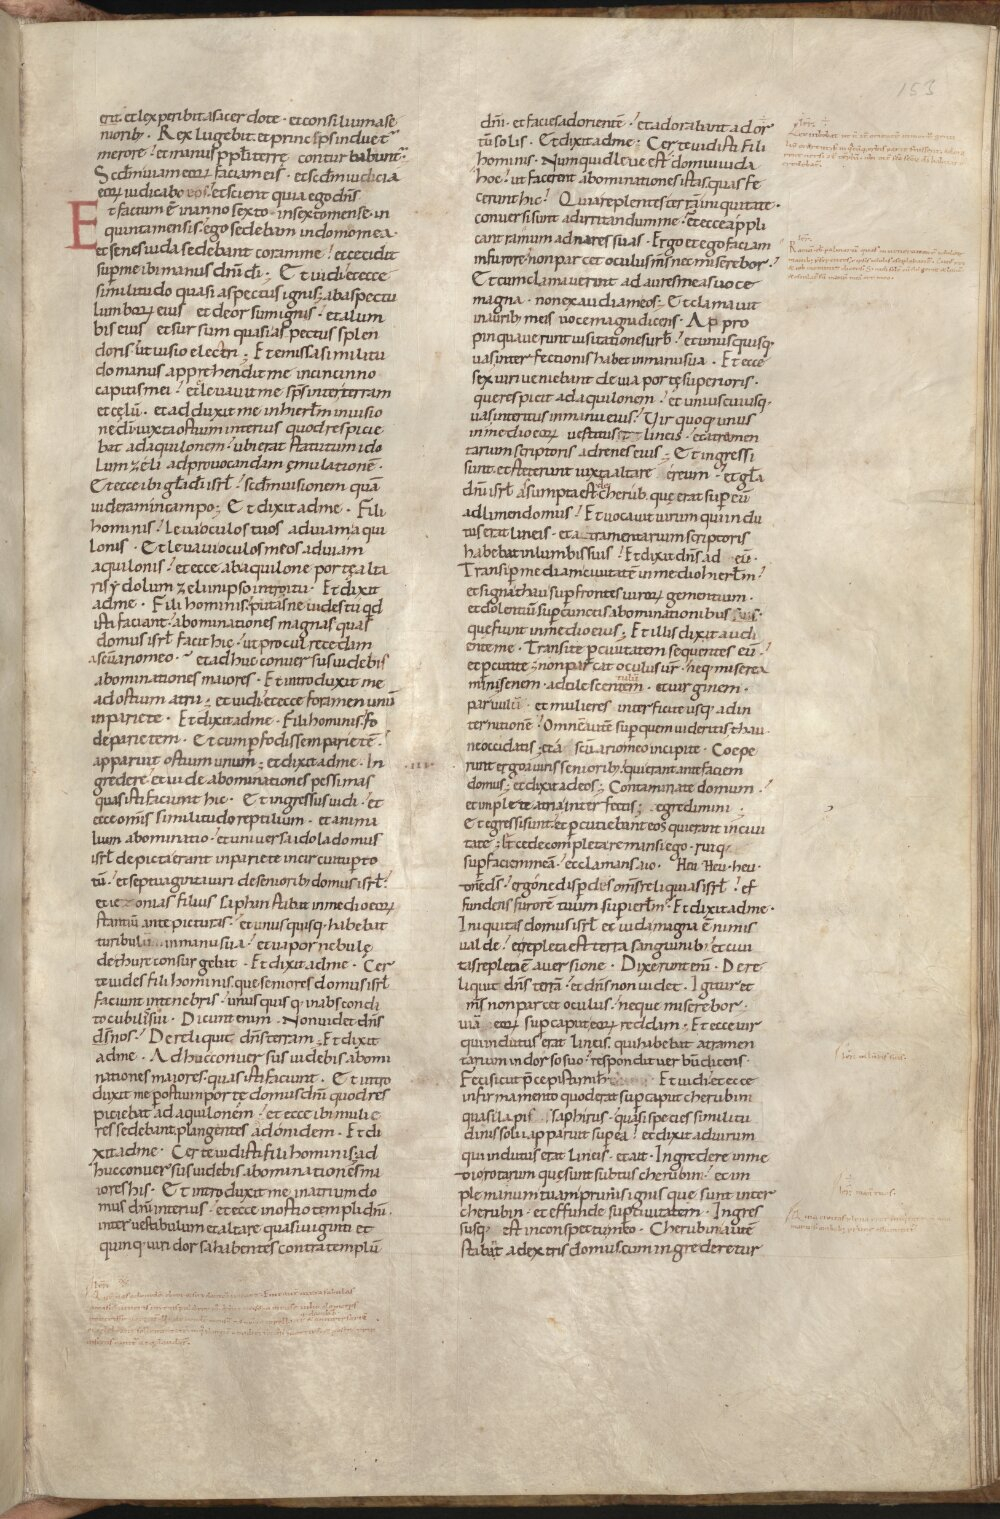 153
erit. et lex peribit a sacerdote · et consilium a se
niorib; · Rex lugebit. et princeps induet͛
merore ! et manus ppli terrę conturbabunt͛ ·
Scdm viam eorꝝ faciam eis · et scdm iudicia
eorꝝ iudicabo eos ! et scient quia ego dn̄s
Et factum ē in anno sexto · in sexto mense · in
quinta mensis ! ego sedebam in domo mea ·
et senes iuda sedebant coram me ! et cecidit
sup me ibi manus dn̄i di ; Et uidi et ecce
similitudo quasi aspectus ignis ; ab aspectu
lumborꝝ eius et deorsum ignis ! et a lum
bis eius et sursum quasi aspectus splen
doris ! ut uisio electri ; Et emissa similitu
do manus apprehendit me in cincinno
capitis mei ! et leuauit me sp̄s inter terram
et cęlū · et adduxit me in hierłm in uisio
ne di ! iuxta ostium interius quod respicie
bat ad aquilonem ! ubi erat statutum ido
lum zeli ad prouocandam ęmulationē ·
Et ecce ibi gła di isrł ! scdm uisionem quā
uideram in campo ; Et dixit ad me · Fili
hominis ! leua oculos tuos ad uiam aqui
lonis · Et leuaui oculos meos ad uiam
aquilonis ! et ecce ab aquilone portę alta
ris ydolum zeli in ipso introitu · Et dixit
ad me · Fili hominis ! putasne uides tu qd
isti faciant ! abominationes magnas quas
domus isrł facit hic ! ut procul recedam
a scuario meo · et adhuc conuersus uidebis
abominationes maiores · Et introduxit me
ad ostium atrii ; et uidi et ecce foramen unū
in pariete · Et dixit ad me · Fili hominis ! fo
de parietem · Et cum pfodissem parietē !
apparuit ostium unum ; et dixit ad me · In
gredere ! et uide abominationes pessimas
quas isti faciunt hic · Et ingressus uidi ! et
ecce omis similitudo reptilium · et anima
lium abominatio · et uniuersa idola domus
isrł depicta erant in pariete in circuitu p to
tū ! et septuaginta uiri de seniorib; domus isrł !
et iezonias filius saphan stabat in medio eorꝝ
stantiū ante picturas ! et unusquisq; habebat
turibulū in manu sua ! et uapor nebulę
de thure consurgebat · Et dixit ad me · Cer
te uides fili hominis quę seniores domus isrł
faciunt in tenebris ! unusquisq; in abscondi
to cubilis sui · Dicunt enim · Non uidet dn̄s
ds nos ! Dereliquit dn̄s terram · Et dixit
ad me · Adhuc conuersus uidebis abomi
nationes maiores quas isti faciunt · Et intro
duxit me p ostium portę domus dn̄i quod res
piciebat ad aquilonem ! et ecce ibi mulie
res sedebant plangentes adonidem · Et di
xit ad me · Certe uidisti fili hominis ! ad
huc conuersus uidebis abominationes ma
iores his · Et introduxit me in atrium do
mus dn̄i interius ! et ecce in ostio templi dn̄i
inter uestibulum et altare quasi uiginti et
quinq; uiri dorsa habentes contra templū
dn̄i · et facies ad orientē ! et adorabant ad or
tū solis · Et dixit ad me : Certe uidisti fili
hominis · Numquid leue est domui iuda
hoc ! ut facerent abominationes istas quas fe
cerunt hic ! Quia replentes terrā iniquitate ·
conuersi sunt ad irritandum me ! et ecce appli
cant ramum ad nares suas · Ergo et ego faciam
in furore ! non parcet oculus ms nec miserebor !
Et cum clamauerint ad aures meas uoce
magna · non exaudiam eos ; Et clamauit
in aurib; meis uoce magna dicens · Appro
pinquauerunt uisitationes urb̄ ! et unusquisq;
uas interfectionis habet in manu sua · Et ecce
sex uiri ueniebant de uia portę superioris ·
quę respicit ad aquilonem ! et uniuscuiusq;
uas interitus in manu eius ! Uir quoq; unus
in medio eorꝝ uestitus lineis ! et atramen
tarium scriptoris ad renes eius ; Et ingressi
sunt · et steterunt iuxta altare ereum ! et gła
dn̄i isrł assumpta est de cherub · quę erat sup eū
ad limen domus ! Et uocauit uirum qui indu
tus erat lineis · et atramentarium scriptoris
habebat in lumbis suis ! Et dixit dn̄s ad eū ·
Transi p mediam ciuitatē in medio hierłm !
et signa thau sup frontes uirorꝝ gementium ·
et dolentiū sup cunctis abominationibus suis ·
que fiunt in medio eius ; Et illis dixit audi
ente me · Transite p ciuitatem sequentes eū !
et pcutite ; non parcat oculus ur̄ ! neq; miserea
mini senem · adulescentem · et uirginem ·
paruulū et mulieres interficite usq; ad in
ternitionē ! Omnē aūtē sup quem uideritis thau
ne occidatis ; et a scuario meo incipite · Coepe
runt ergo a uiris seniorib; ! qui erant ante faciem
domus ; et dixit ad eos ; Contaminate domum !
et implete atria interfectis ; egredimini ·
Et egressi sunt ! et pcutiebant eos qui erant in ciui
tate ; Et cede completa remansi ego · ruiq;
sup faciem meā · et clamans aio · Heu Heu · heu ·
dn̄e ds ! ergone dispdes omīs reliquias isrł ! ef
fundens furorē tuum sup ierłm · Et dixit ad me ·
Iniquitas domus isrł et iuda magna ē nimis
ualde ! et repleta est terra sanguinib; et ciui
tas repleta ē auersione · Dixerunt enī · Dere
liquit dn̄s terrā ! et dn̄s non uidet · Igitur et
ms non parcet oculus ! neque miserebor ·
uiā eorꝝ sup caput eorꝝ reddam · Et ecce uir
qui indutus erat lineis · qui habebat atramen
tarium in dorso suo ! respondit uerbū dicens ·
Feci sicut pcepisti mih · Et uidi · et ecce
in firmamento quod erat sup caput cherubim
quasi lapis saphirus · quasi species similitu
dinis solii apparuit sup ea ! et dixit ad uirum
qui indutus erat lineis · et ait · Ingredere in me
dio rotarum quę sunt subtus cherubin ! et im
ple manum tuam prunis ignis que sunt inter
cherubin · et effunde sup ciuitatem · Ingres
susq; est in conspectu meo · Cherubin aūtē
stabāt a dextris domus cum ingrederetur